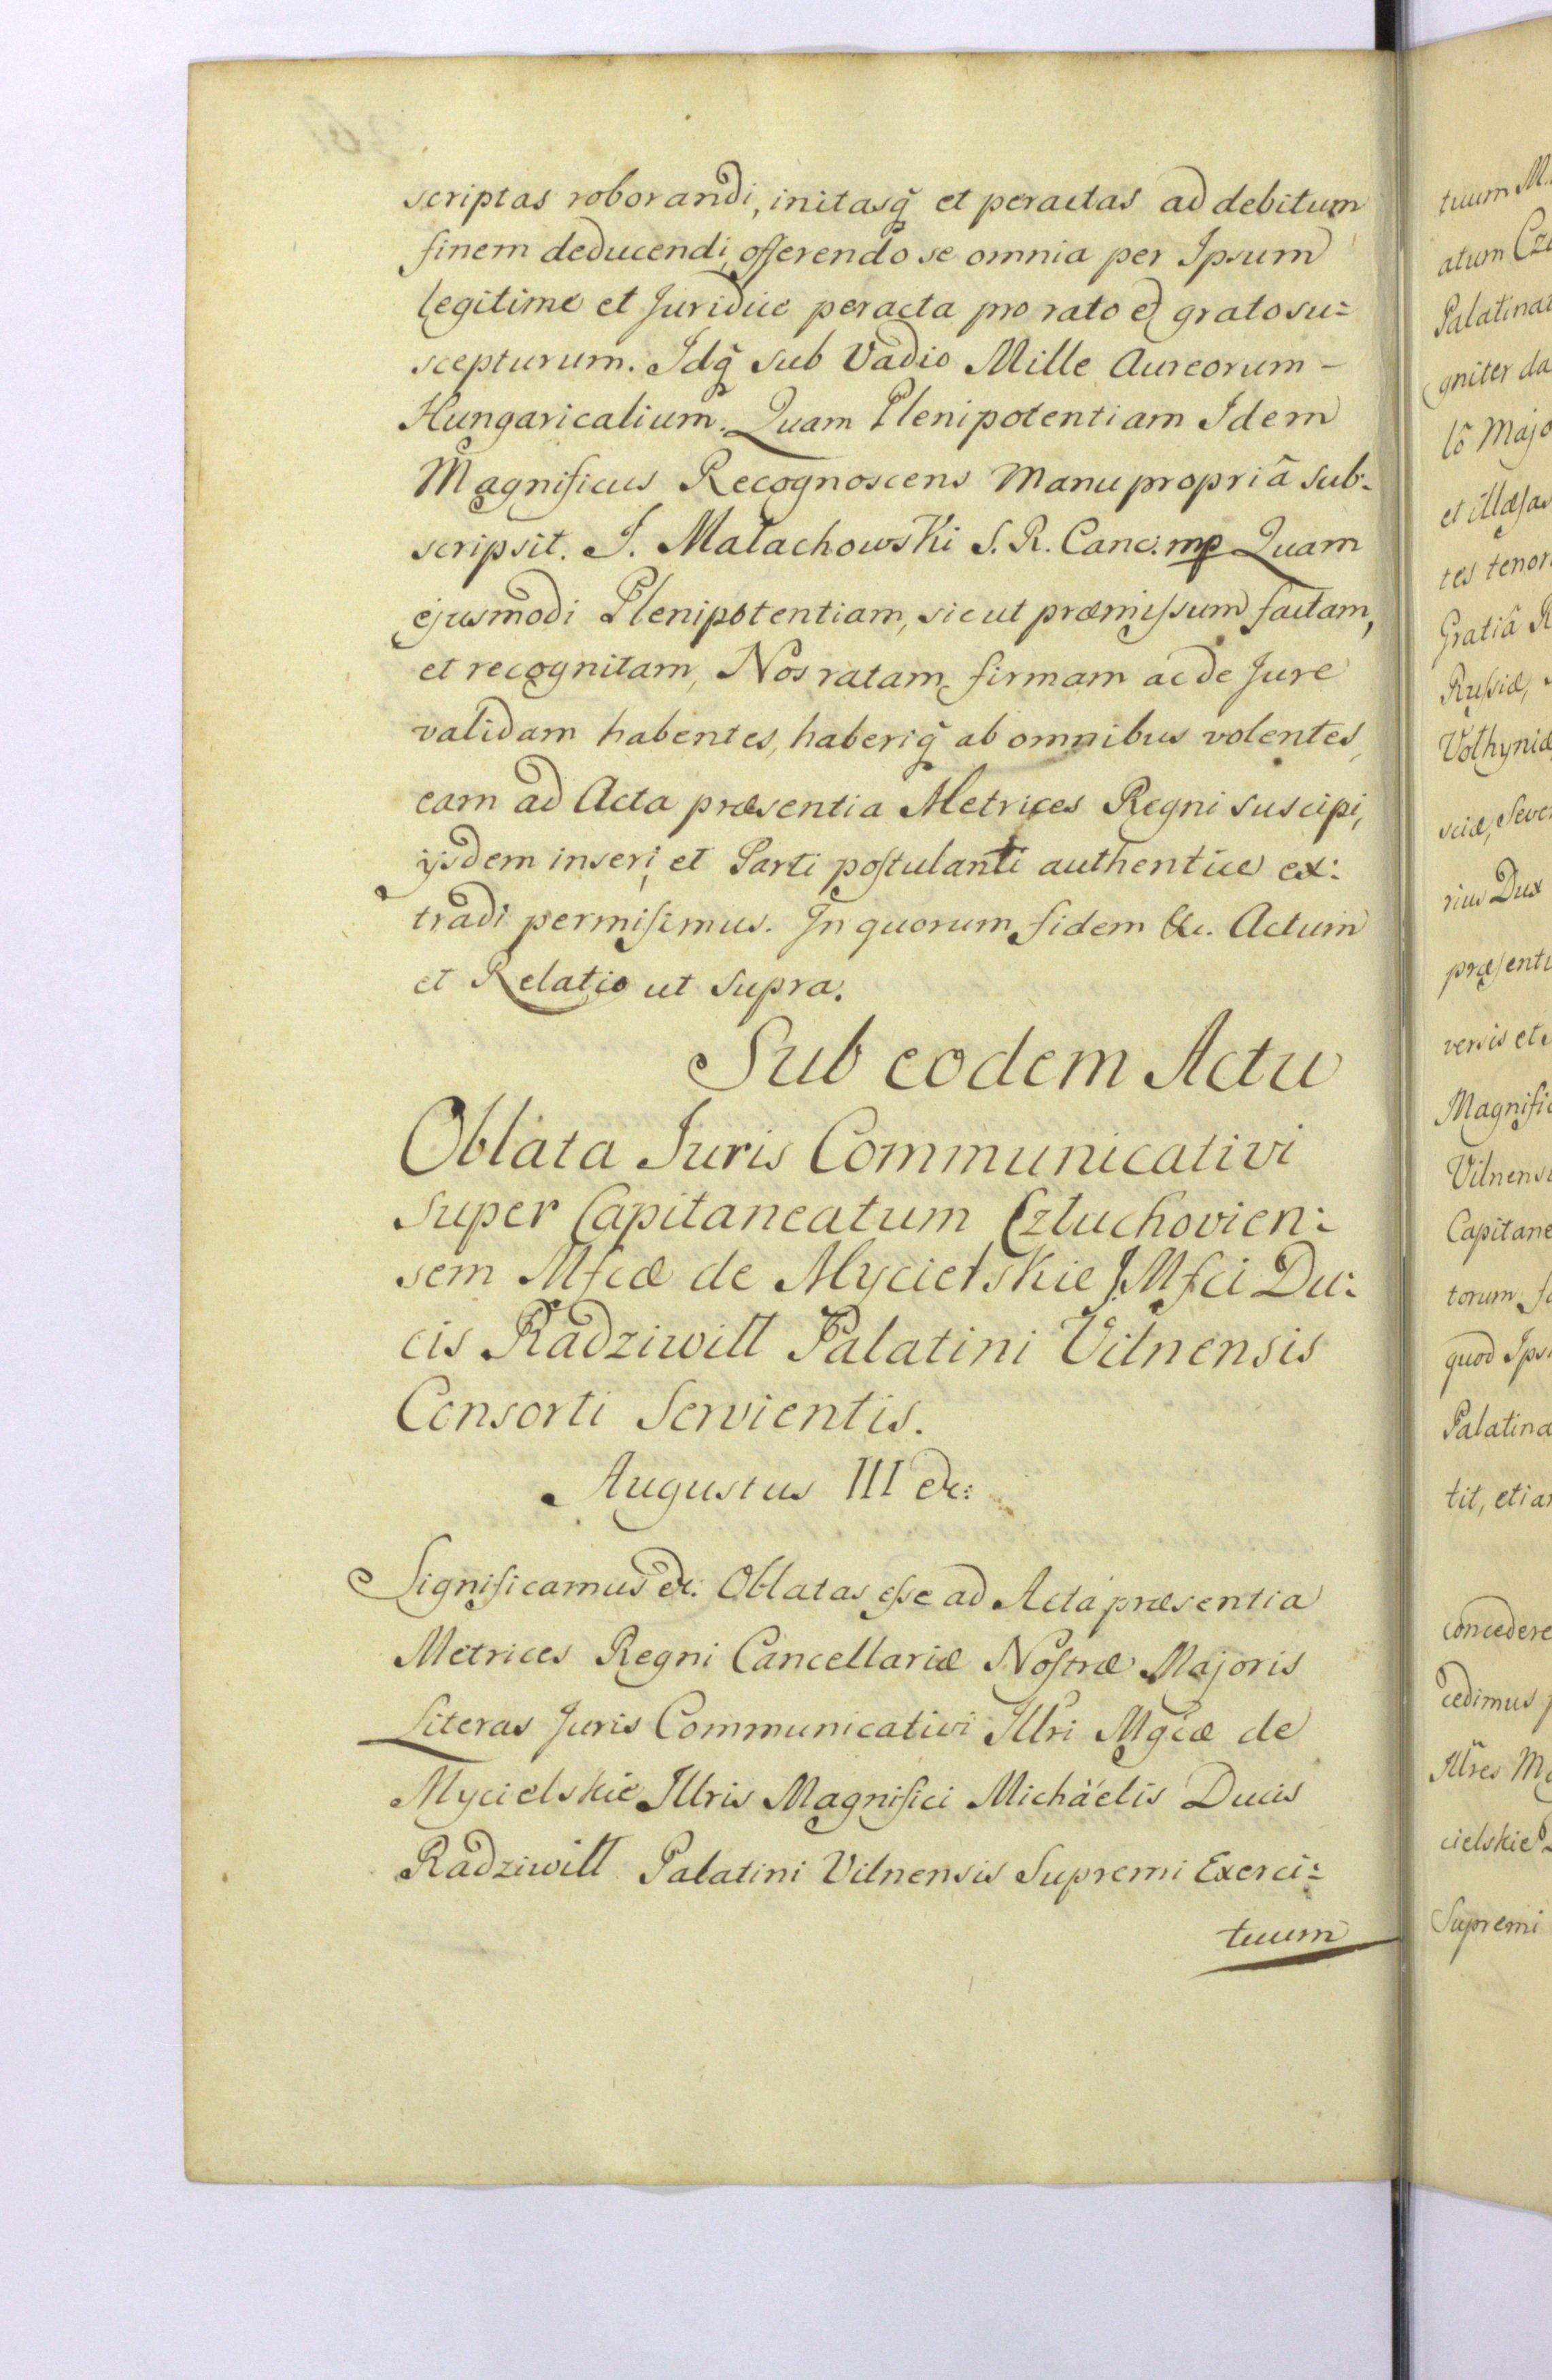 scriptas roborandi, initasq̃ et peractas ad debitum
finem deducendi, offerendo se omnia per Ipsum
legitime et Juridice peracta pro rato et grato su=
scepturum. Idq̃ sub Vadio Mille Aureorum –
Hungaricalium. Quam Plenipotentiam Idem
Magnificus Recognoscens Manu propriâ sub=
scripsit. J. Małachowski S. R. Canc. mp Quam
ejusmodi Plenipotentiam, sicut præmissum factam,
et recognitam, Nos ratam firmam ac de Jure
validam habentes, haberiq̃ ab omnibus volentes,
eam ad Acta præsentia Metrices Regni suscipi,
ijsdem inseri, et Parti postulanti authentice ex:
tradi permisimus. In quorum fidem &c. Actum
et Relatio ut supra.
Sub eodem Actu
Oblata Juris Communicativi
super Capitaneatum Człuchovien:
sem Mfcæ de Mycielskie J. Mfci Du:
cis Radziwiłł Palatini Vilnensis
Consorti Servientis.
Augustus III &c:
Significamus &c. Oblatas esse ad Acta præsentia
Metrices Regni Cancellariæ Nostræ Majoris
Literas Juris Communicativi Illri Mgcæ de
Mycielskie Illris Magnifici Michäelis Ducis
Radziwiłł Palatini Vilnensis Supremi Exerci=
tuum
tuum M.
atum Czł
Palatinat
gniter da
lõ Majo
et illæsas
tes tenor
Gratiâ R
Russiæ,
Volhyniæ
sciæ, Sever
rius Dux
præsenti
versis et
Magnific
Vilnensi
Capitane
torum
quod Ips
Palatina
tit, etia
concedere
cedimus
Illres Ma
cielskie
Supremi